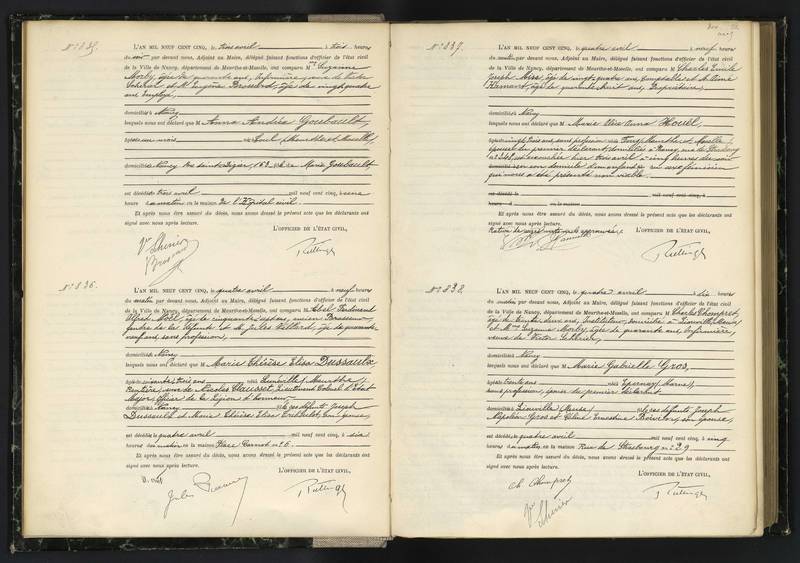 N° 835.
L'AN MIL NEUF CENT CINQ, le trois avril à trois heures
du soir par devant nous, Adjoint au Maire, délégué faisant fonctions d'officier de l'état civil
de la Ville de Nancy, département de Meurthe-et-Moselle, ont comparu Mme Suzanne
Morby, âgée de quarante ans, Infirmière, veuve de Victor
et M. Eugène Brossard, âgé de vingt quatre
ans Employé,
domiciliés à Nancy
lesquels nous ont déclaré que M Anna Andréa Goubault,
âgée de un mois née à Toul (Meurthe et Moselle)
domiciliée à Nancy rue 169 fille de Marie Goubault,
est décédée le trois avril mil neuf cent cinq, à onze
heures du matin en la maison de l'Hôpital civil.
Et après nous être assuré du décès, nous avons dressé le présent acte que les déclarants ont
signé avec nous après lecture.
L'OFFICIER DE L'ÉTAT CIVIL,
N° 836.
L'AN MIL NEUF CENT CINQ, le quatre avril à neuf heures
du matin par devant nous, Adjoint au Maire, délégué faisant fonctions d'officier de l'état civil
de la Ville de Nancy, département de Meurthe-et-Moselle, ont comparu M. Abel Ferdinand
Alfred Noël, âgé de cinquante sept ans, ancien Brasseur
gendre de la défunte et M. Jules Villard, âgé de quarante
neuf ans sans profession,
domiciliés à Nancy
lesquels nous ont déclaré que M Marie Thérèse Elisa Dussaulx
âgée de soixante trois ans née à Lunéville (Meurthe
Rentière, veuve de Nicolas Clausset, Lieutenant Colonel d'Etat
Major Officier de la Légion d'honneur
domiciliée à Nancy fille des défunts Joseph
Dussaulx et Marie Thérèse Elisa son épouse,
est décédée le quatre avril mil neuf cent cinq, à six
heures du matin en la maison Place Carnot n° 6.
Et après nous être assuré du décès, nous avons dressé le présent acte que les déclarants ont
signé avec nous après lecture.
L'OFFICIER DE L'ÉTAT CIVIL,
N° 837.
L'AN MIL NEUF CENT CINQ, le quatre avril à neuf heures
du matin par devant nous, Adjoint au Maire, délégué faisant fonctions d'officier de l'état civil
de la Ville de Nancy, département de Meurthe-et-Moselle, ont comparu M Charles Emile
Joseph âgé de vingt quatre ans Comptable et M. Aimé
âgé de quarante huit ans, Propriétaire,
domiciliés à Nancy
lesquels nous ont déclaré que M Marie Elia Anna Houël,
âgée de vingt trois ans, sans profession née à Toul (Meurthe et Moselle)
épouse du premier déclarant, domiciliée à Nancy, rue de Strasbourg
n° est accouchée hier trois avril à cinq heures du soir
en son domicile d'un enfant du sexe féminin
qui nous a été présenté non viable.
est décédé le mil neuf cent cinq, à
heure d en la maison
Et après nous être assuré du décès, nous avons dressé le présent acte que les déclarants ont
signé avec nous après lecture.
L'OFFICIER DE L'ÉTAT CIVIL,
N° 838.
L'AN MIL NEUF CENT CINQ, le quatre avril à dix heures
du matin par devant nous, Adjoint au Maire, délégué faisant fonctions d'officier de l'état civil
de la Ville de Nancy, département de Meurthe-et-Moselle, ont comparu M Charles Chompret,
âgé de trente deux ans, Instituteur, domicilié à Liouville (Meuse)
et Mme Suzanne Morby, âgée de quarante ans, Infirmière,
veuve de Victor
domiciliés à Nancy
lesquels nous ont déclaré que M Marie Gabrielle Gros,
âgée de trente ans née à Epernay (Marne),
sans profession, épouse du premier déclarant
domiciliée à Liouville (Meuse) fille des défunts Joseph
Napoléon Gros et Ernestine son épouse,
est décédée le quatre avril mil neuf cent cinq, à cinq
heures du matin en la maison Rue de Strasbourg n° 29
Et après nous être assuré du décès, nous avons dressé le présent acte que les déclarants ont
signé avec nous après lecture.
L'OFFICIER DE L'ÉTAT CIVIL,
Ch Chompret